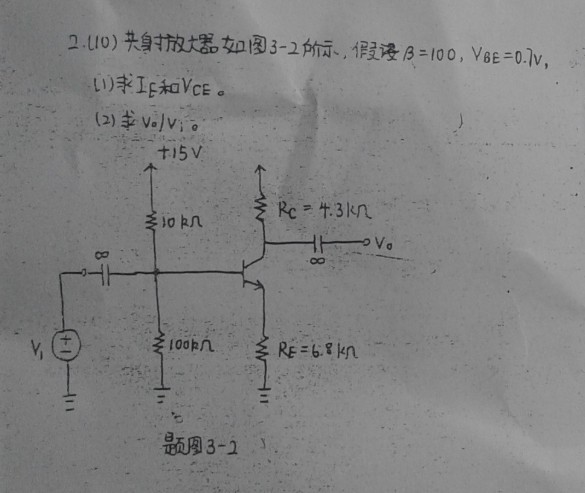 2.(10) 共射放大器如图3-2所示，假设β=100, VBE=0.7V,
(1)求IE和VCE。
(2)求Vo/Vi。
+15V
10kΩ
RC=4.3kΩ
∞
Vo
∞
Vi
+
-
100kΩ
RE=6.8kΩ
题图3-2